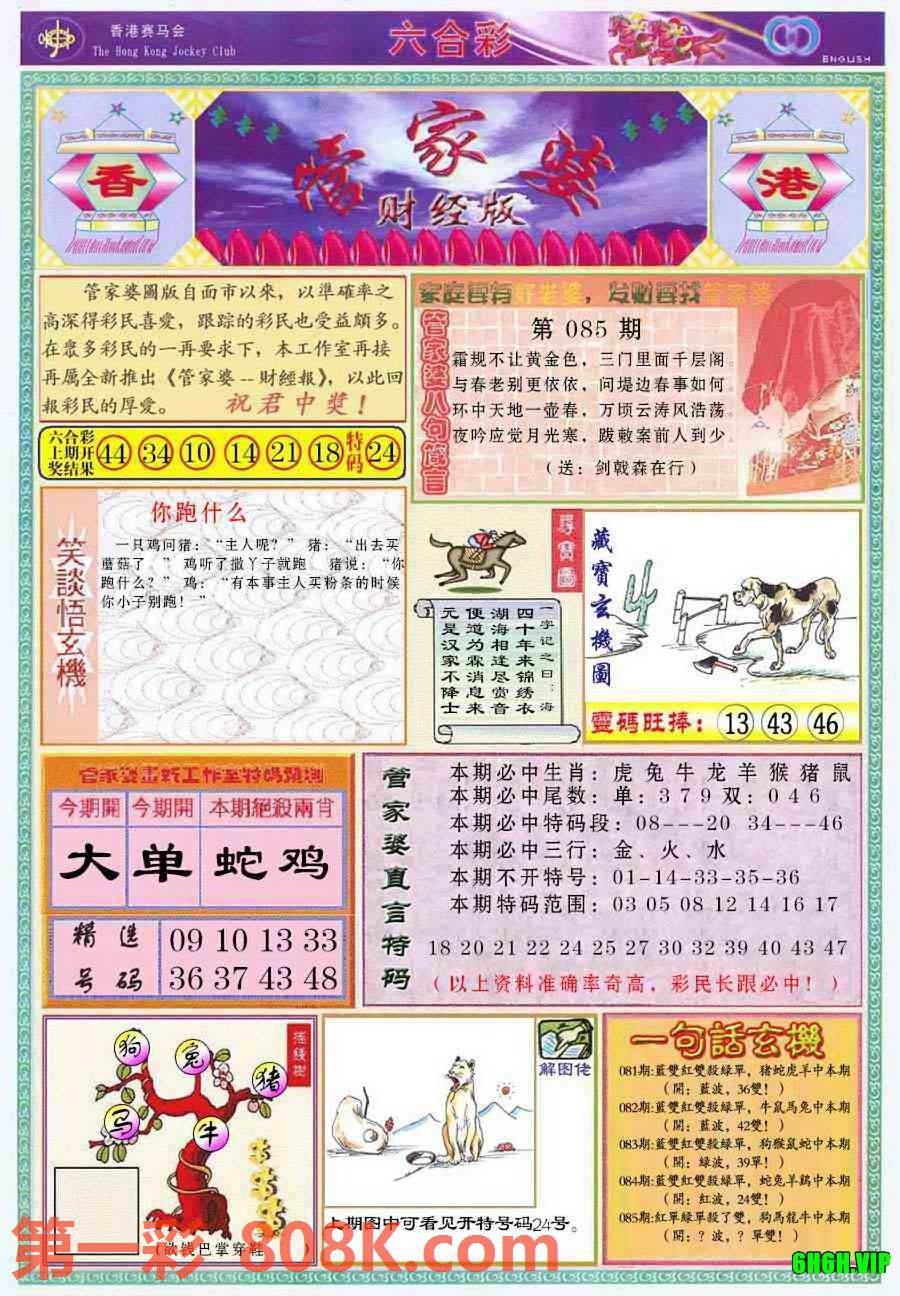 香港赛马会
The Hong Kong Jockey Club
六合彩
ENGLISH
香
管家婆
财经版
港
管家婆圖版自面市以來，以準確率之
高深得彩民喜愛，跟踪的彩民也受益頗多。
在衆多彩民的一再要求下，本工作室再接
再厲全新推出《管家婆--財經報》，以此回
報彩民的厚愛。 祝君中獎！
六合彩
上期开
奖结果
44 34 10 14 21 18 特码 24
家庭要有好老婆，发财要找管家婆
管家婆八句箴言
第 085 期
霜规不让黄金色，三门里面千层阁。
与春老别更依依，问堤边春事如何。
环中天地一壶春，万顷云涛风浩荡。
夜吟应觉月光寒，跋敕案前人到少。
（送：剑戟森在行）
笑談悟玄機
你跑什么
一只鸡问猪：“主人呢？” 猪：“出去买
蘑菇了 。” 鸡听了撒丫子就跑 。猪说：“你
跑什么？” 鸡：“有本事主人买粉条的时候
你小子别跑！”
尋寶圖
一字记之曰：海
四十年来锦绣衣
湖海相逢尽赏音
便道为霖消息来
元是汉家不降士
藏寶玄機圖
靈碼旺捧： 13 43 46
管家婆畫新工作室特碼預測
今期開 今期開 本期絕殺兩肖
大 单 蛇鸡
精选
号码
09 10 13 33
36 37 43 48
管家婆直言特码
本期必中生肖：虎 兔 牛 龙 羊 猴 猪 鼠
本期必中尾数：单：3 7 9 双：0 4 6
本期必中特码段：08---20 34---46
本期必中三行：金、火、水
本期不开特号：01-14-33-35-36
本期特码范围：03 05 08 12 14 16 17
18 20 21 22 24 25 27 30 32 39 40 43 47
（以上资料准确率奇高，彩民长跟必中！）
摇錢樹
狗
兔
猪
马
牛
（欲钱巴掌穿鞋 ）
解图佬
上期图中可看见开特号码24号。
一句話玄機
081期:藍雙紅雙殺綠單，猪蛇虎羊中本期
（開：藍波，36雙！）
082期:藍雙紅雙殺綠單，牛鼠馬兔中本期
（開：藍波，42雙！）
083期:藍雙紅雙殺綠單，狗猴鼠蛇中本期
（開：綠波，39單！）
084期:藍雙紅雙殺綠單，蛇兔羊鷄中本期
（開：紅波，24雙！）
085期:紅單綠單殺了雙，狗馬龍牛中本期
（開：？波，？單雙！）
第一彩 808K.com
6H6H.VIP